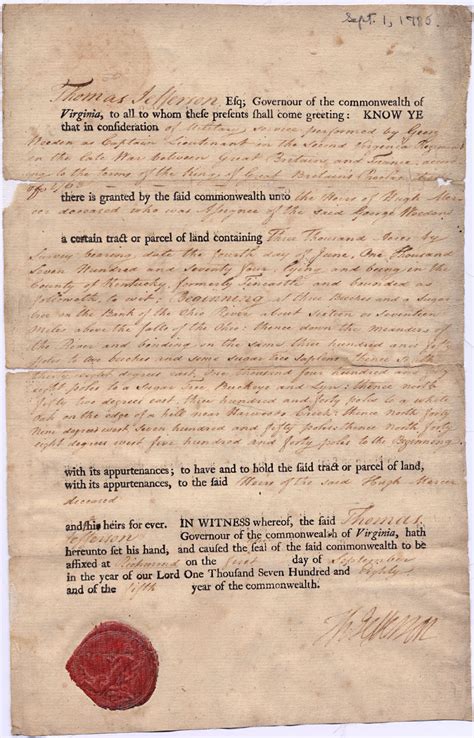 Sept. 1, 1780.
Thomas Jefferson, Esq; Governour of the commonwealth of
Virginia, to all to whom these presents shall come greeting: KNOW YE
that in consideration of Military Service performed by George
Weedon as Captain Lieutenant in the Second Virginia Regiment
in the late War between Great Britain and France, according
to the terms of the King of Great Britain's Proclamation
of 1763
there is granted by the said commonwealth unto the Heirs of Hugh Mercer
deceased who was Assignee of the said George Weedon
a certain tract or parcel of land containing Three Thousand Acres by
Survey bearing date the fourth day of June, One Thousand
Seven Hundred and Seventy four, lying and being in the
County of Kentucky, formerly Fincastle and bounded as
followeth, to wit; Beginning at three Buckeyes and a Sugar
tree on the Bank of the Ohio River about Sixteen or Seventeen
Miles above the falls of the Ohio: thence down the meanders of
the River and binding on the same three hundred and fifty
Poles to two buckeyes and some Sugar tree Saplins thence South
degrees west five thousand four hundred and
eight poles to a Sugar Tree Buckeye and thence north
fifty two degrees east, three hundred and forty poles to a white
Ash on the edge of a hill near Harwoods Creek; thence north forty
nine degrees west Seven hundred and fifty poles thence north forty
eight degrees west five hundred and forty poles to the Beginning
with its appurtenances; to have and to hold the said tract or parcel of land,
with its appurtenances, to the said Heirs of the said Hugh Mercer
deceased
and/his heirs for ever. IN WITNESS whereof, the said Thomas
Jefferson Governour of the commonwealth of Virginia, hath
hereunto set his hand, and caused the seal of the said commonwealth to be
affixed at Richmond on the first day of September
in the year of our Lord One Thousand Seven Hundred and Eighty
and of the fifth year of the commonwealth.
Th Jefferson